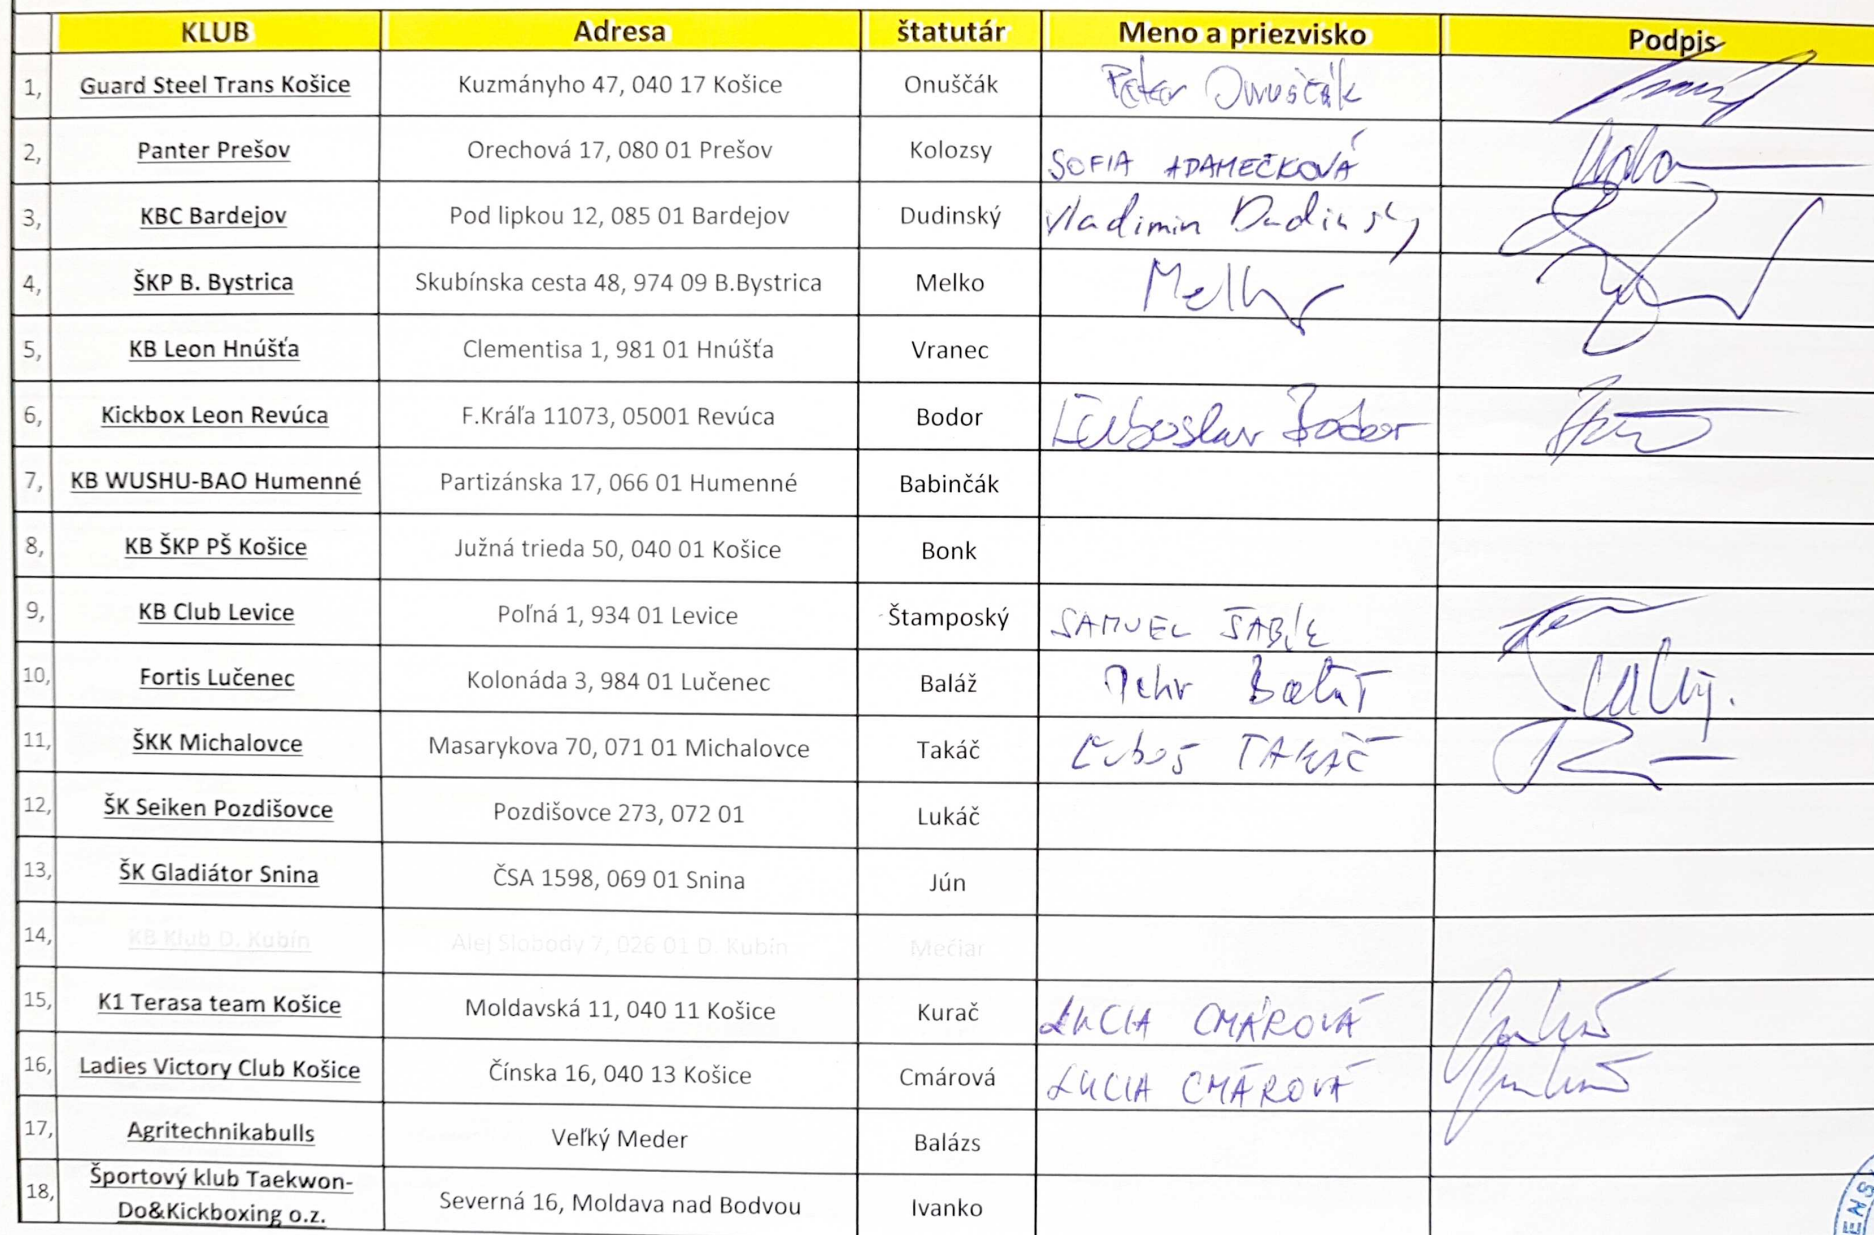 KLUB Adresa štatutár Meno a priezvisko Podpis
1, Guard Steel Trans Košice Kuzmányho 47, 040 17 Košice Onuščák Peter Onuščák
2, Panter Prešov Orechová 17, 080 01 Prešov Kolozsy SOFIA ADAMEČKOVÁ
3, KBC Bardejov Pod lipkou 12, 085 01 Bardejov Dudinský Vladimir Dudinský
4, ŠKP B. Bystrica Skubínska cesta 48, 974 09 B.Bystrica Melko Melko
5, KB Leon Hnúšťa Clementisa 1, 981 01 Hnúšťa Vranec
6, Kickbox Leon Revúca F.Kráľa 11073, 05001 Revúca Bodor Ľuboslav Bodor
7, KB WUSHU-BAO Humenné Partizánska 17, 066 01 Humenné Babinčák
8, KB ŠKP PŠ Košice Južná trieda 50, 040 01 Košice Bonk
9, KB Club Levice Poľná 1, 934 01 Levice Štamposký SAMUEL
10, Fortis Lučenec Kolonáda 3, 984 01 Lučenec Baláž Petr Baláž
11, ŠKK Michalovce Masarykova 70, 071 01 Michalovce Takáč Ľuboš TAKÁČ
12, ŠK Seiken Pozdišovce Pozdišovce 273, 072 01 Lukáč
13, ŠK Gladiátor Snina ČSA 1598, 069 01 Snina Jún
14, KB Klub D. Kubín Alej Slobody 7, 026 01 D. Kubín Mečiar
15, K1 Terasa team Košice Moldavská 11, 040 11 Košice Kurač LUCIA CMÁROVÁ
16, Ladies Victory Club Košice Čínska 16, 040 13 Košice Cmárová LUCIA CMÁROVÁ
17, Agritechnikabulls Veľký Meder Balázs
18, Športový klub Taekwon-
Do&Kickboxing o.z. Severná 16, Moldava nad Bodvou Ivanko